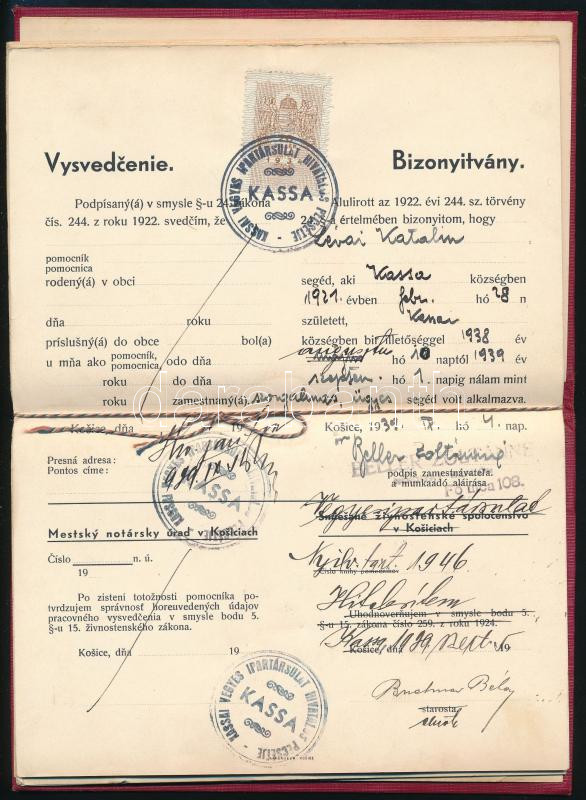 Vysvedčenie.
Bizonyitvány.
KASSAI VEGYES IPARTÁRSULAT HIVATALOS PECSÉTJE
KASSA
Podpísaný(á) v smysle §-u 24. zákona
čís. 244. z roku 1922. svedčím, že
Alulirott az 1922. évi 244. sz. törvény
24. §-a értelmében bizonyitom, hogy
Lévai Katalin
pomocník
pomocnica
rodený(á) v obci
segéd, aki Kassa községben
1921. évben febr. hó 28 n
dňa roku
született, Kassai
príslušný(á) do obce bol(a)
községben bir illetőséggel 1938 év
u mňa ako pomocník, pomocnica, odo dňa
augusztus hó 10 naptól 1939 év
roku do dňa
szepten. hó 1. napig nálam mint
roku zamestnaný(á).
szorgalmas, ügyes segéd volt alkalmazva.
Košice, dňa 19
Košice, 1939. IX. hó 4. nap.
Presná adresa:
Pontos címe:
Beller Zoltánné
podpis zamestnávateľa.
a munkaadó aláirása.
Fő utca 108.
KASSA
Vegyesipartársulat
Smiešané živnostenské spoločenstvo
v Košiciach
Mestský notársky úrad v Košiciach
Číslo n. ú.
19
Nyilv. tart. 1946.
Číslo knihy pomocníkov
Po zistení totožnosti pomocníka po-
tvrdzujem správnosť horeuvedených údajov
pracovného vysvedčenia v smysle bodu 5.
§-u 15. živnostenského zákona.
Hitelesítem
Uhodnoverňujem v smysle bodu 5.
§-u 15. zákona číslo 259. z roku 1924.
Košice, dňa 19
Kassa, 1939. szept. 5
Košice, dňa 19
KASSAI VEGYES IPARTÁRSULAT HIVATALOS PECSÉTJE
KASSA
Béla
starosta
elnök
darabanth